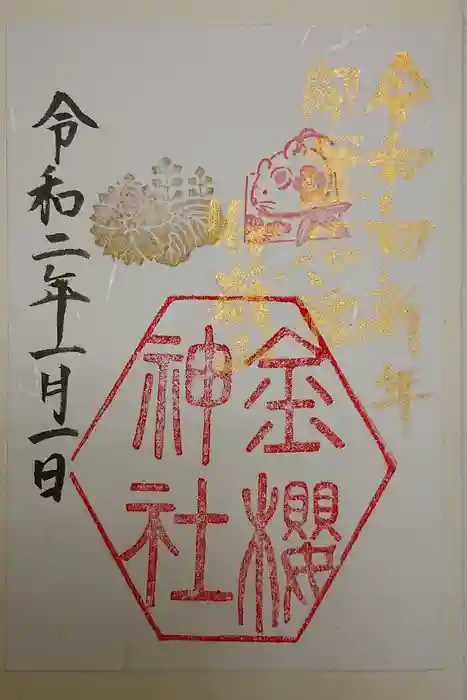 令和初新年
金櫻
神社
令和二年一月一日